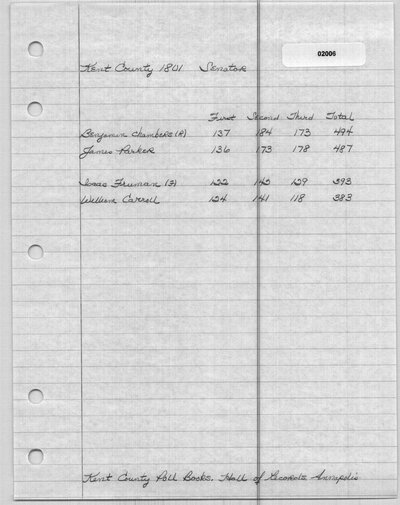 02006
Kent County 1801 Senator
First Second Third Total
Benjamin Chambers (R) 137 184 173 494
James Parker 136 173 178 487
Isaac Freeman (F) 122 142 129 393
William Carroll 124 141 118 383
Kent County Poll Books. Hall of Records Annapolis